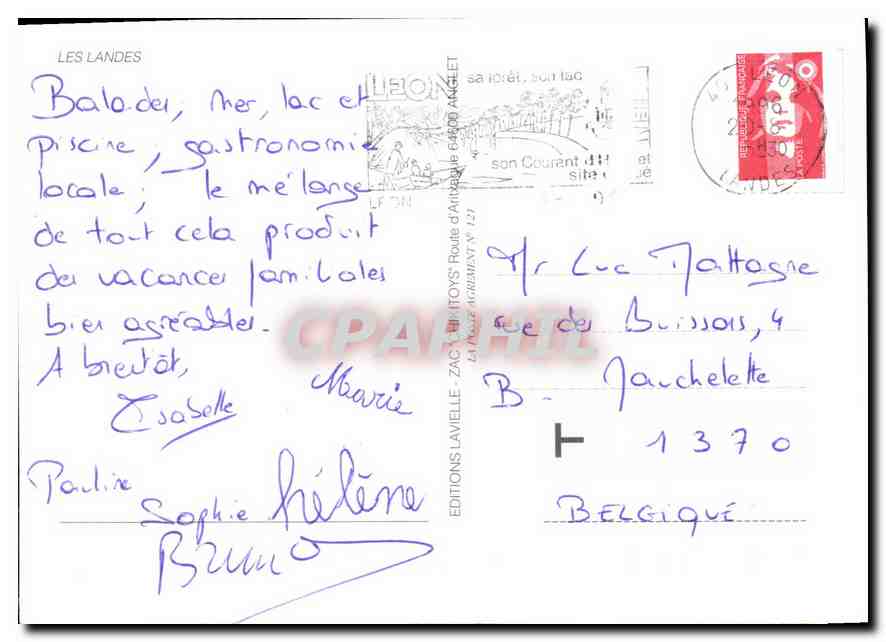 LES LANDES
Balades, mer, lac et
piscine, gastronomie
locale; le mélange
de tout cela produit
des vacances familiales
bien agréables.
A bientôt,
Isabelle
Marie
Pauline
Sophie
Hélène
Bruno
EDITIONS LAVIELLE - ZAC "CHIKITOYS" Route d'Aritxague 64600 ANGLET
LA POSTE AGREMENT N° 121
LEON
sa forêt, son lac
son Courant d'H et
site
LEON
LEON
LANDES
REPUBLIQUE FRANÇAISE
LA POSTE
Mr Luc Mattagne
rue des Buissons, 4
B - Jauchelette
T
1370
BELGIQUE
CPAPHIL